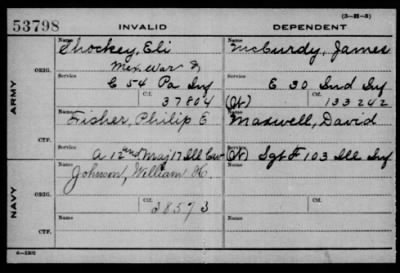 53798 INVALID DEPENDENT (3-H-8)
ARMY
ORIG.
Name Shockey, Eli
Mex. War &
Service
C 54 Pa Inf
Ctf. 37804
Name McCurdy, James
Service
E 30 Ind Inf
(Wt) Ctf. 133242
CTF.
Name Fisher, Philip E
Service
A 12 and Maj 17 Ill Cav
Name Maxwell, David
Service
(Wt) Sgt F 103 Ill Inf
NAVY
ORIG.
Name Johnson, William H.
Service
Ctf. 38573
Name
Service
Ctf.
CTF.
Name
Service
Name
Service